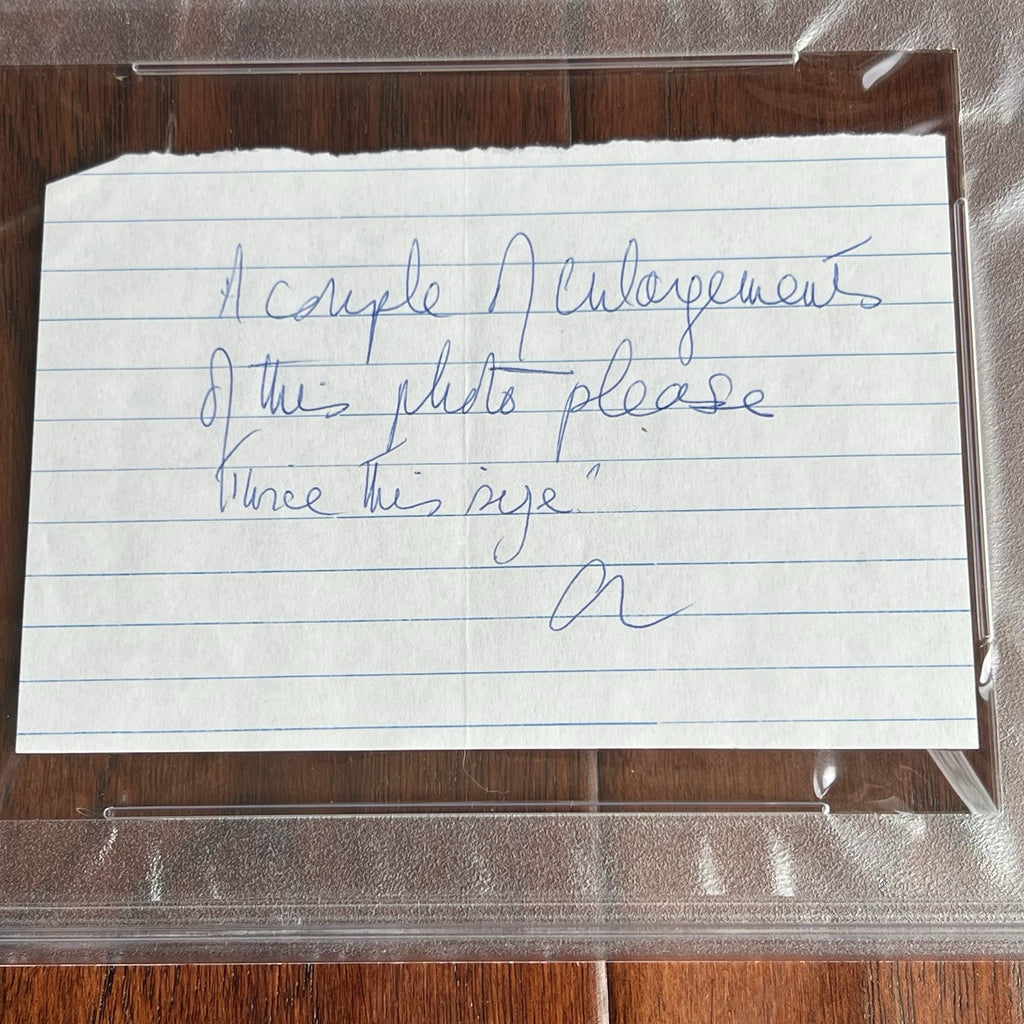 A couple of enlargements
of this photo please
Twice this size.